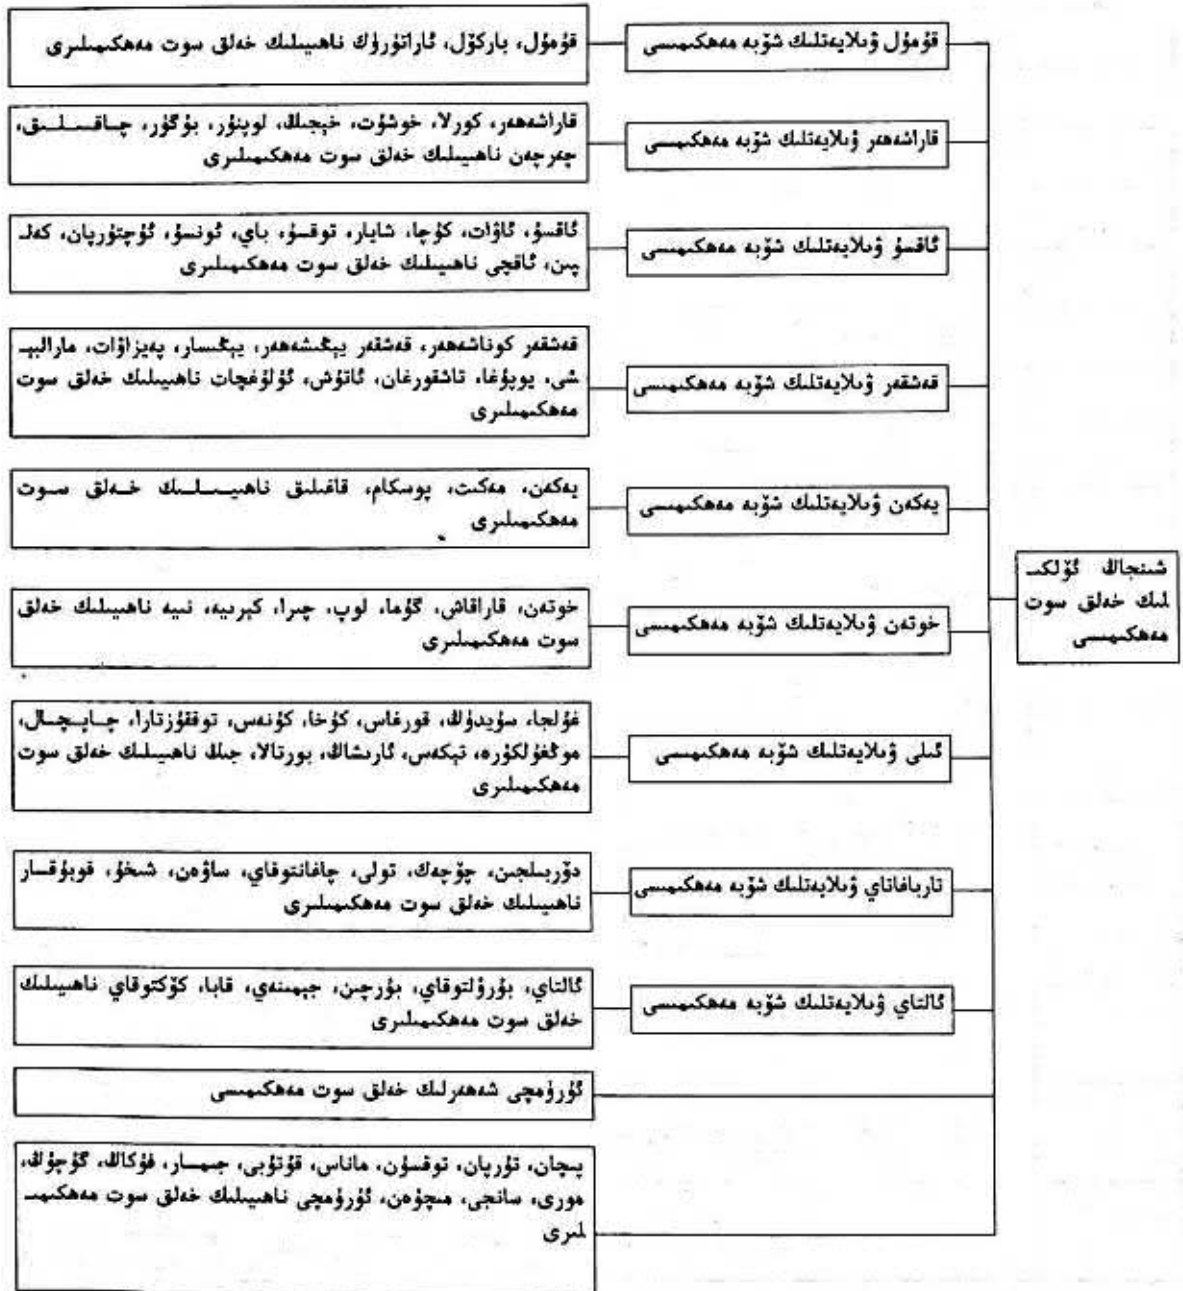 قۇمۇل ۋىلايەتلىك شۆبە مەھكىمىسى
قۇمۇل، باركۆل، ئاراتۈرۈك ناھىيىلىك خەلق سوت مەھكىمىلىرى
قاراشەھەر ۋىلايەتلىك شۆبە مەھكىمىسى
قاراشەھەر، كورلا، خوشۇت، خېجىڭ، لوپنۇر، بۈگۈر، چاقىلىق،
چەرچەن ناھىيىلىك خەلق سوت مەھكىمىلىرى
ئاقسۇ ۋىلايەتلىك شۆبە مەھكىمىسى
ئاقسۇ، ئاۋات، كۇچا، شايار، توقسۇ، باي، ئونسۇ، ئۇچتۇرپان، كەل‍
پىن، ئاقچى ناھىيىلىك خەلق سوت مەھكىمىلىرى
قەشقەر ۋىلايەتلىك شۆبە مەھكىمىسى
قەشقەر كوناشەھەر، قەشقەر يېڭىشەھەر، يېڭىسار، پەيزاۋات، مارالبې‍
شى، يوپۇغا، تاشقورغان، ئاتۇش، ئۇلۇغچات ناھىيىلىك خەلق سوت
مەھكىمىلىرى
يەكەن ۋىلايەتلىك شۆبە مەھكىمىسى
يەكەن، مەكىت، پوسكام، قاغىلىق ناھىيىلىك خەلق سوت
مەھكىمىلىرى
شىنجاڭ ئۆلكى‍
لىك خەلق سوت
مەھكىمىسى
خوتەن ۋىلايەتلىك شۆبە مەھكىمىسى
خوتەن، قاراقاش، گۇما، لوپ، چىرا، كېرىيە، نىيە ناھىيىلىك خەلق
سوت مەھكىمىلىرى
ئىلى ۋىلايەتلىك شۆبە مەھكىمىسى
غۇلجا، سۈيدۈڭ، قورغاس، كۇخا، كۈنەس، توققۇزتارا، چاپچال،
موڭغۇلكۈرە، تېكەس، ئارىشاڭ، بورتالا، جىڭ ناھىيىلىك خەلق سوت
مەھكىمىلىرى
تارباغاتاي ۋىلايەتلىك شۆبە مەھكىمىسى
دۆربىلجىن، چۆچەك، تولى، چاغانتوقاي، ساۋەن، شىخۇ، قوبۇقسار
ناھىيىلىك خەلق سوت مەھكىمىلىرى
ئالتاي ۋىلايەتلىك شۆبە مەھكىمىسى
ئالتاي، بۇرۇلتوقاي، بۇرچىن، جېمىنەي، قابا، كۆكتوقاي ناھىيىلىك
خەلق سوت مەھكىمىلىرى
ئۈرۈمچى شەھەرلىك خەلق سوت مەھكىمىسى
پىچان، تۇرپان، توقسۇن، ماناس، قۇتۇبى، جىمسار، فۇكاڭ، گۇچۇڭ،
مورى، سانجى، مىچۇەن، ئۈرۈمچى ناھىيىلىك خەلق سوت مەھكىمى‍
لىرى